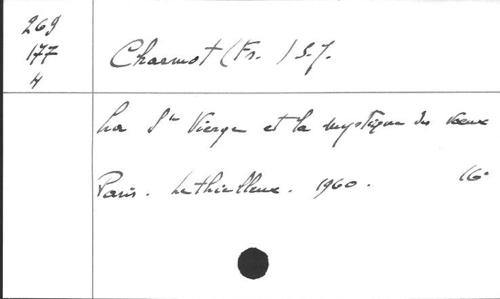 269
177
4
Charmot (Fr. ) S.J.
La Ste Vierge et la mystique des vœux
Paris. Lethielleux. 1960. 16°